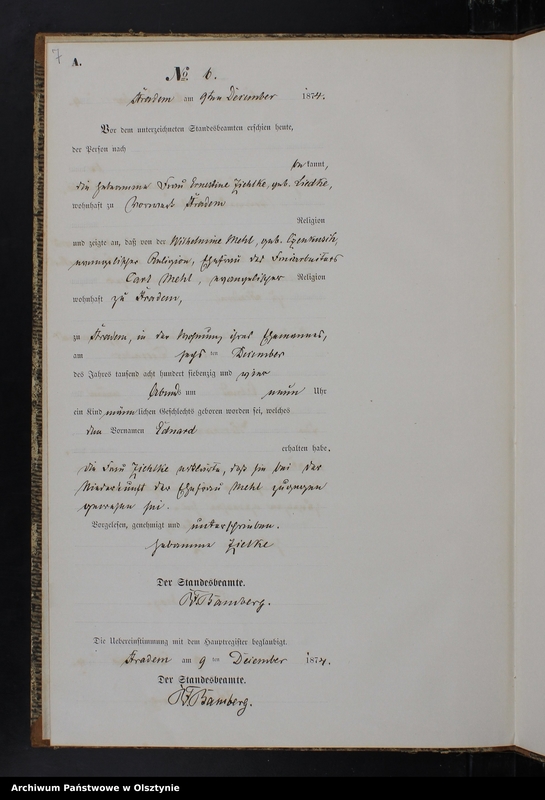 7
A.
No. 6.
Fradem am 9ten December 1874.
Vor dem unterzeichneten Standesbeamten erschien heute,
der Person nach
bekannt,
die Hebamme Frau Ernestine Zichlke, geb. Liedke,
wohnhaft zu Vorwerk Fradem
Religion
und zeigte an, daß von der Wilhelmine Mehl, geb.
evangelischer Religion, Ehefrau des
Carl Mehl, evangelischer Religion
wohnhaft zu Fradem,
zu Fradem, in der Wohnung ihres Ehemannes,
am sechs ten December
des Jahres tausend acht hundert siebenzig und vier
Abends um neun Uhr
ein Kind männlichen Geschlechts geboren worden sei, welches
den Vornamen Eduard
erhalten habe.
Die Frau Zichlke erklärte, daß sie bei der
Niederkunft der Ehefrau Mehl zugegen
gewesen sei.
Vorgelesen, genehmigt und unterschrieben.
Hebamme Zielke
Der Standesbeamte.
Bamberg.
Die Uebereinstimmung mit dem Hauptregister beglaubigt.
Fradem am 9 ten December 1874.
Der Standesbeamte.
Bamberg.
Archiwum Państwowe w Olsztynie